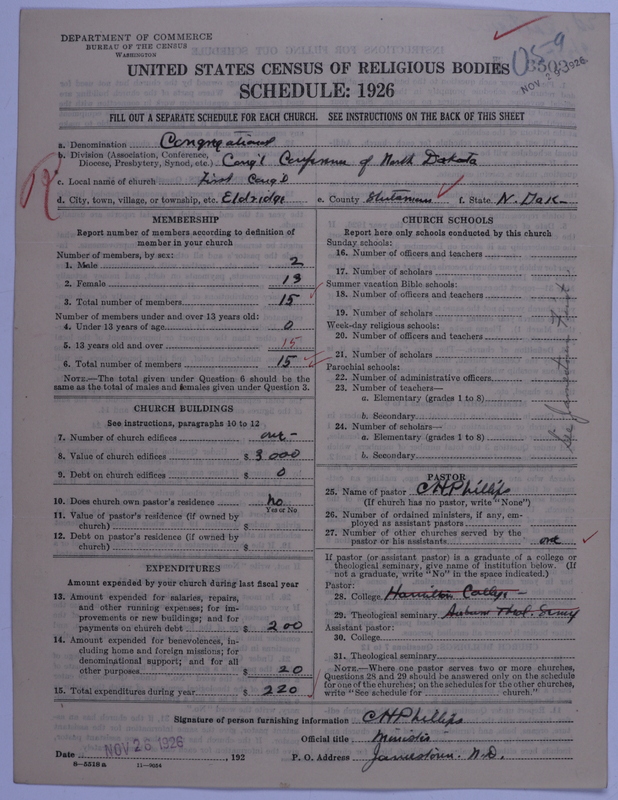 DEPARTMENT OF COMMERCE
BUREAU OF THE CENSUS
WASHINGTON
UNITED STATES CENSUS OF RELIGIOUS BODIES
SCHEDULE: 1926
NOV 26 1926
FILL OUT A SEPARATE SCHEDULE FOR EACH CHURCH. SEE INSTRUCTIONS ON THE BACK OF THIS SHEET
a. Denomination Congregational
b. Division (Association, Conference, Diocese, Presbytery, Synod, etc.) Cong'l Conference of North Dakota
c. Local name of church First Cong'l
d. City, town, village, or township, etc. Eldridge e. County Stutsman f. State N. Dak
MEMBERSHIP
Report number of members according to definition of
member in your church
Number of members, by sex:
1. Male 2
2. Female 13
3. Total number of members 15
Number of members under and over 13 years old:
4. Under 13 years of age 0
5. 13 years old and over 15
6. Total number of members 15
NOTE.—The total given under Question 6 should be the
same as the total of males and females given under Question 3.
CHURCH BUILDINGS
See instructions, paragraphs 10 to 12
7. Number of church edifices one
8. Value of church edifices $ 3000
9. Debt on church edifices $ 0
10. Does church own pastor's residence No
Yes or No
11. Value of pastor's residence (if owned by
church) $
12. Debt on pastor's residence (if owned by
church) $
EXPENDITURES
Amount expended by your church during last fiscal year
13. Amount expended for salaries, repairs,
and other running expenses; for im-
provements or new buildings; and for
payments on church debt $ 200
14. Amount expended for benevolences, in-
cluding home and foreign missions; for
denominational support; and for all
other purposes $ 20
15. Total expenditures during year $ 220
CHURCH SCHOOLS
Report here only schools conducted by this church
Sunday schools:
16. Number of officers and teachers
17. Number of scholars
Summer vacation Bible schools:
18. Number of officers and teachers
19. Number of scholars
Week-day religious schools:
20. Number of officers and teachers
21. Number of scholars
Parochial schools:
22. Number of administrative officers
23. Number of teachers—
a. Elementary (grades 1 to 8)
b. Secondary
24. Number of scholars—
a. Elementary (grades 1 to 8)
b. Secondary
See Jamestown First
PASTOR
25. Name of pastor C H Phillips
(If church has no pastor, write "None")
26. Number of ordained ministers, if any, em-
ployed as assistant pastors
27. Number of other churches served by the
pastor or his assistants one
If pastor (or assistant pastor) is a graduate of a college or
theological seminary, give name of institution below. (If
not a graduate, write "No" in the space indicated.)
Pastor:
28. College Hamilton College
29. Theological seminary Auburn Theol. Semy
Assistant pastor:
30. College
31. Theological seminary
NOTE.—Where one pastor serves two or more churches,
Questions 28 and 29 should be answered only on the schedule
for one of the churches; on the schedules for the other churches,
write "See schedule for church."
Signature of person furnishing information C H Phillips
Official title Minister
Date NOV 26 1926, 192 P. O. Address Jamestown. N.D.
8—5518 a 11—9034